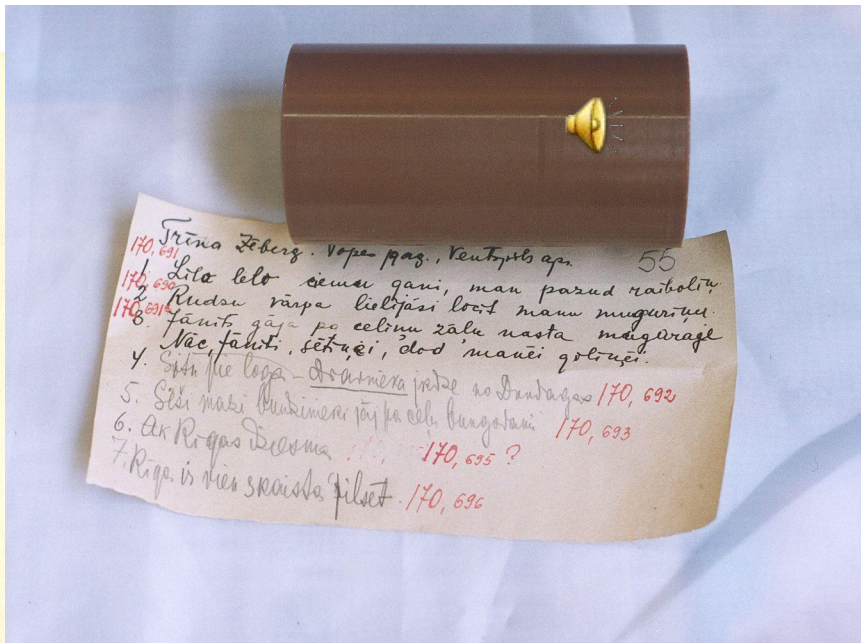 Trīna Zēberg. Popes pag., Ventspils apr. 55
170,691
1. Lilo lelo ciema gani, man pazud raibaliņ
170,690
2. Rudzu vārpa lielījās locīt manu muguriņu.
170,691a
3. Jānīts gāja pa celiņu zāļu nasta mugurāje
Nāc, Jānīti, sētiņēi, dod manēi
4. Situ pie loga - Dramieka no Dundagas 170,692
5. Seši mazi bundzinieki jāj pa ceļu bungodami 170,693
6. Ak Rīgas dziesma 170,695 ?
7. Rīga is vien skaista pilsēt. 170,696